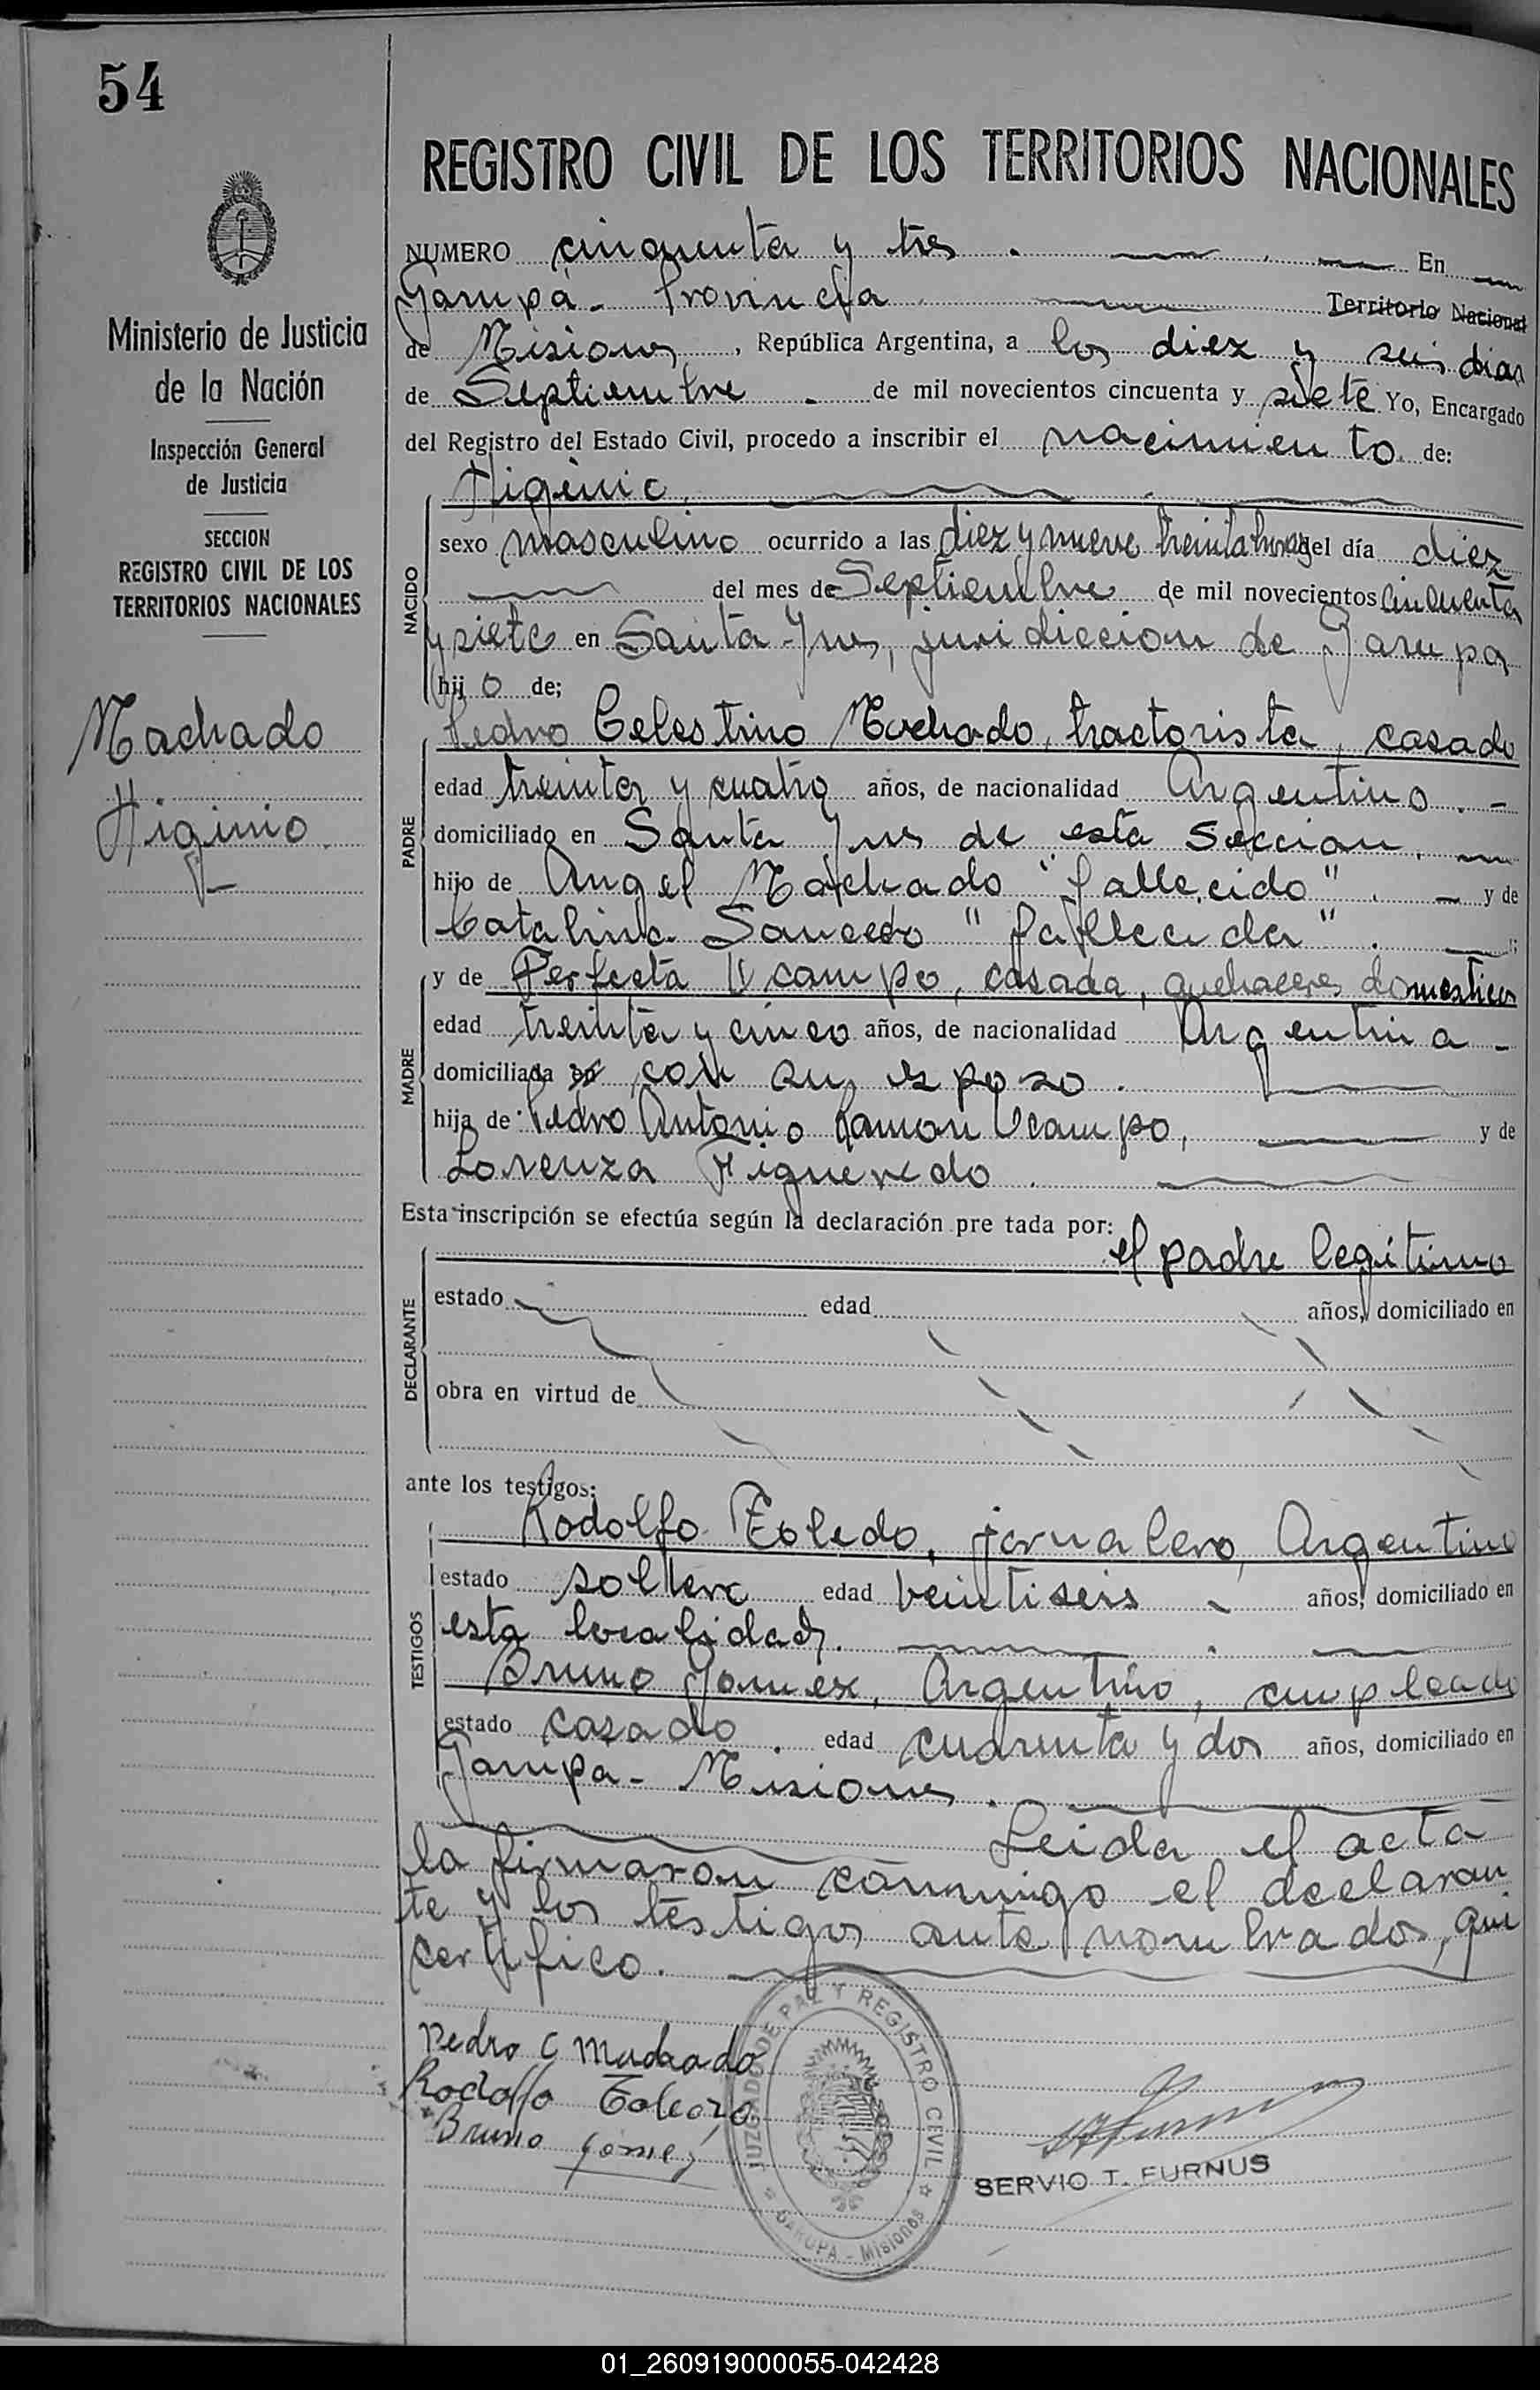 54
REGISTRO CIVIL DE LOS TERRITORIOS NACIONALES
Ministerio de Justicia
de la Nación
Inspección General
de Justicia
SECCION
REGISTRO CIVIL DE LOS
TERRITORIOS NACIONALES
Machado
Higinio
NUMERO cinquenta y tres En
Garupá - Provincia Territorio Nacional
de Misiones, República Argentina, a los diez y seis dias
de Septiembre de mil novecientos cincuenta y siete Yo, Encargado
del Registro del Estado Civil, procedo a inscribir el nacimiento de:
Higinio
NACIDO
sexo masculino ocurrido a las diez y nueve treinta horas del día diez
del mes de Septiembre de mil novecientos cincuenta
y siete en Santa Ines, juridiccion de Garupa
hijo de;
PADRE
Pedro Celestino Machado, tractorista, casado
edad treinta y cuatro años, de nacionalidad Argentino. -
domiciliado en Santa Ines de esta Seccion.
hijo de Angel Machado "fallecido". - y de
Catalina Saucedo "fallecida".
MADRE
y de Perfecta Ocampo, casada, quehaceres domesticos
edad treinta y cinco años, de nacionalidad Argentina -
domiciliada en con su esposo.
hija de Pedro Antonio Ramon Ocampo, y de
Lorenza Figueredo.
Esta inscripción se efectúa según la declaración pre tada por:
el padre legítimo
DECLARANTE
estado edad años, domiciliado en
obra en virtud de
ante los testigos:
TESTIGOS
Rodolfo Toledo, jornalero, Argentino
estado soltero edad veintiseis años, domiciliado en
esta localidad.
Bruno Gomez, Argentino, empleado
estado casado. edad cuarenta y dos años, domiciliado en
Garupa - Misiones.
Leida el acta
la firmaron conmigo el declaran
te y los testigos ante nombrados, que
certifico.
Pedro C Machado
Rodolfo Toledo
Bruno Gomez
JUZGADO DE PAZ Y REGISTRO CIVIL
GARUPA - Misiones
SERVIO T. FURNUS
01_260919000055-042428